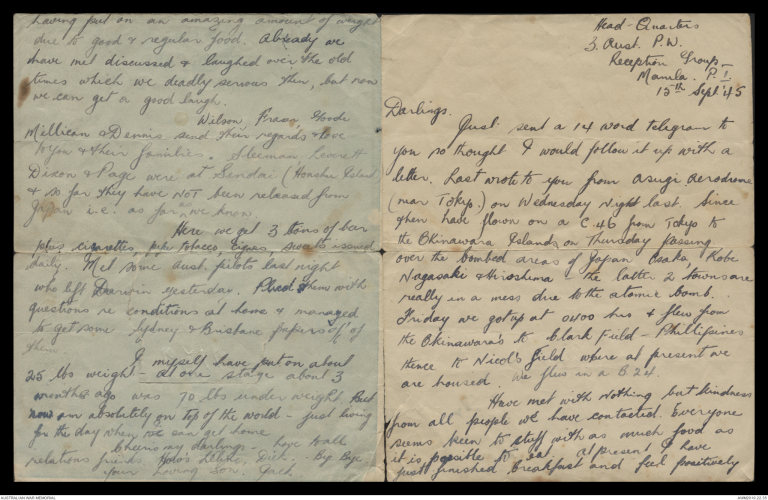 Head-Quarters
3 Aust. P.W.
Reception Group,
Manila. P.I.
15th Sept '45
Darlings.
Just sent a 14 word telegram to
you so thought I would follow it up with a
letter. Last wrote to you from Asugi aerodrome
(near Tokyo.) on Wednesday night last. Since
then have flown on a C.46 from Tokyo to
the Okinawara Islands on Thursday passing
over the bombed areas of Japan Osaka, Kobe
Nagasaki & Hiroshima - the latter 2 towns are
really in a mess due to the atomic bomb.
Friday we got up at 0400 hrs & flew from
the Okinawara's to Clark Field - Phillipines
thence to Nicol's Field where at present we
are housed. We flew in a B24.
Have met with nothing but kindness
from all people we have contacted. Everyone
seems keen to stuff with as much food as
it is possible to eat. At present I have
just finished breakfast and feel positively
having put on an amazing amount of weight
due to good & regular food. Already we
have met discussed & laughed over the old
times which we deadly serious then, but now
we can get a good laugh.
Wilson, Goode
Millican & Dennis send their regards & love
to you & their families. Sleeman Leverett
Dixon & Page were at Sendai (Honshu Island
& so far they have not been released from
Japan i.e. as far as we know.
Here we get 3 tons of bar
cigarettes, pipe tobacco, cigars sweets issued
daily. Met some Aust. pilots last night
who left Darwin yesterday. Plied them with
questions re conditions at home & managed
to get some Sydney & Brisbane papers off of
them
I myself have put on about
25 lbs weight - at one stage about 3
months ago was 70 lbs under weight. But
now am absolutely on top of the world - just living
for the day when we can get home
Cheerio my darlings - love to all
relations friends Leslie, Dick. Bye Bye
Your loving son. Jack.
AUSTRALIAN WAR MEMORIAL